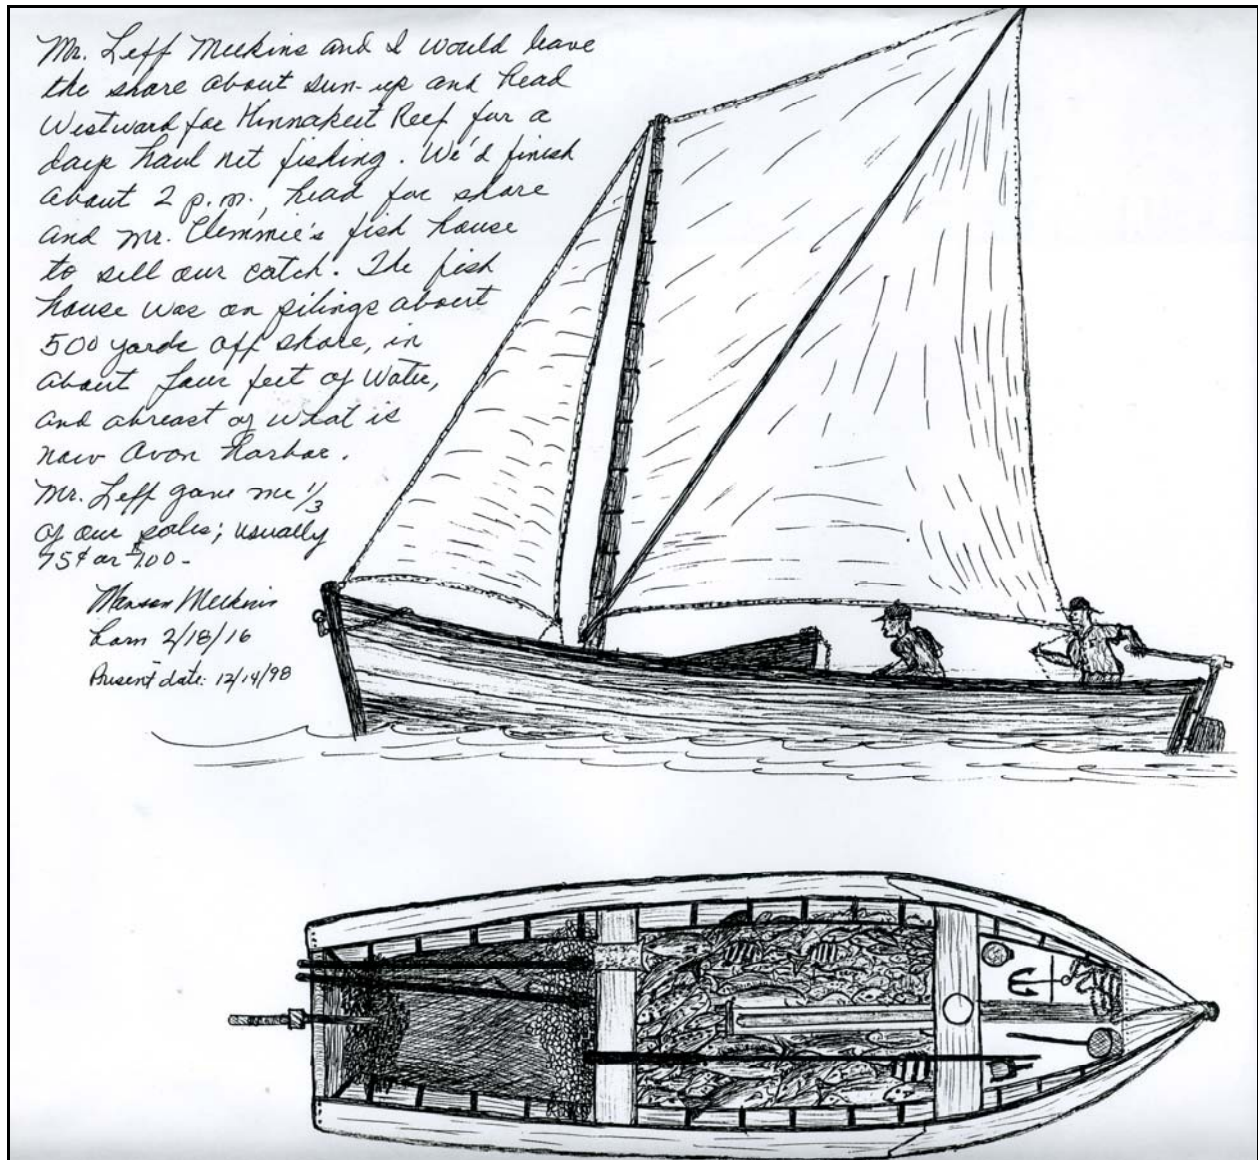 Mr. Leff Meekins and I would leave
the shore about sun-up and head
Westward for Kinnakeet Reef for a
days haul net fishing. We'd finish
about 2 p.m., head for shore
and Mr. Clemmie's fish house
to sell our catch. The fish
house was on pilings about
500 yards off shore, in
about four feet of water,
and abreast of what is
now Avon Harbor.
Mr. Leff gave me 1/3
of our sales; usually
75¢ or $1.00-
Manson Meekins
born 2/18/16
Present date: 12/14/98